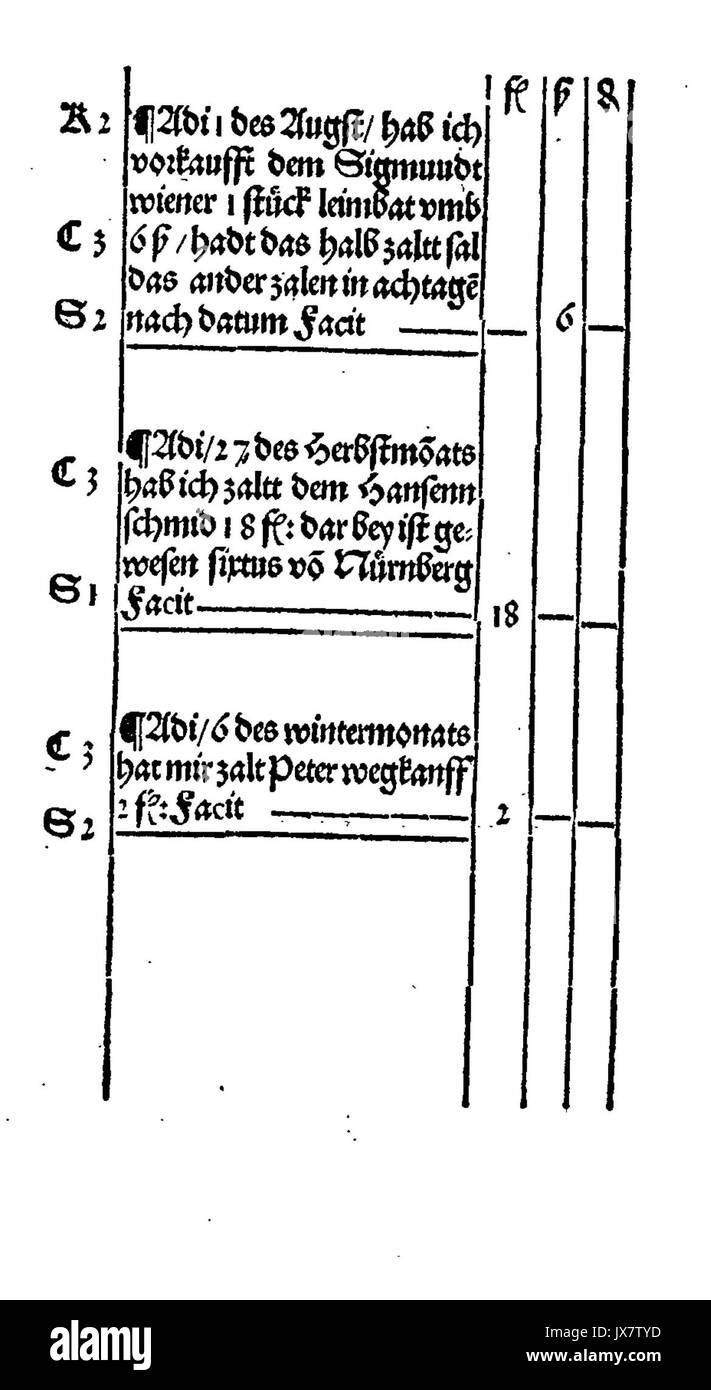 fl ß ₰
K 2 ¶Adi 1 des Augst/ hab ich
vorkaufft dem Sigmuudt
wiener 1 stuͤck leimbat vmb
C 3 6 ß /hadt das halb zaltt sal
das ander zalen in achtagē
S 2 nach datum Facit — — 6 —
¶Adi/27 des Herbstmōats
C 3 hab ich zaltt dem Hansenn
schmid 18 fl: dar bey ist ge⸗
wesen sixtus vō Nuͤrnberg
S 1 Facit — 18 — —
¶Adi/6 des wintermonats
C 3 hat mir zalt Peter wegkanff
S 2 2 fl: Facit — 2 — —
alamy
Image ID: JX7TYD
www.alamy.com